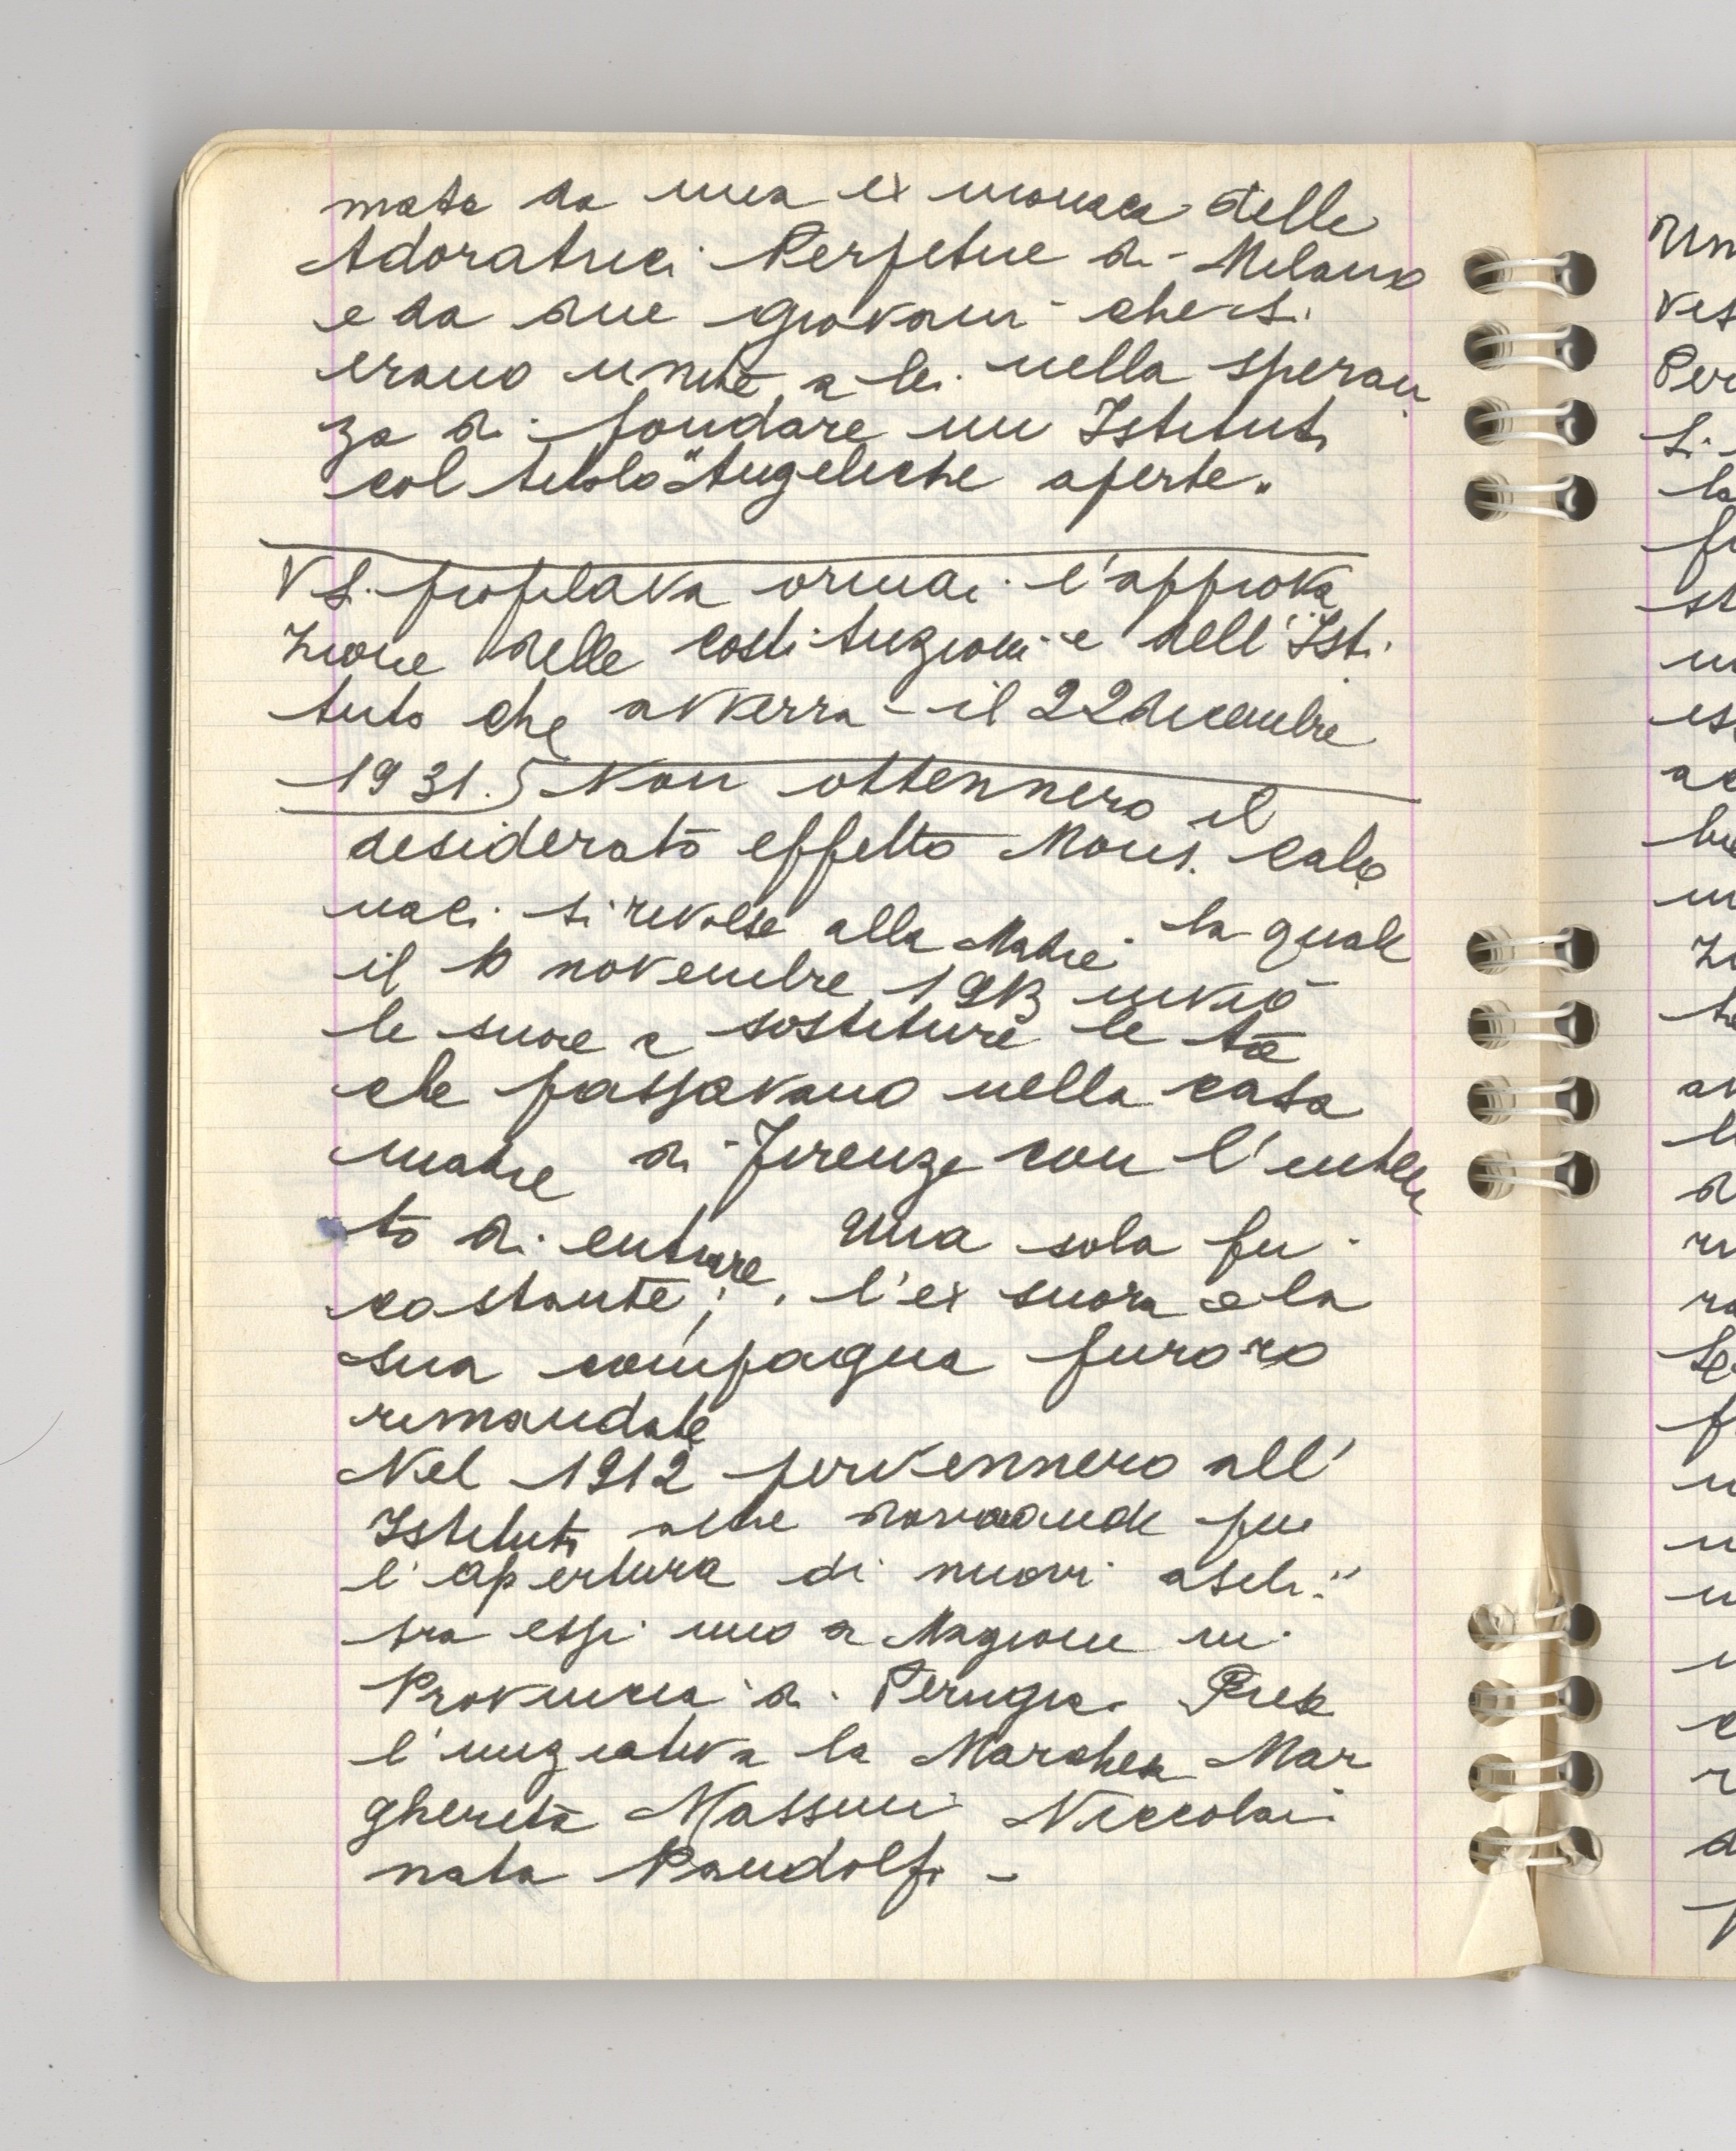 mata da una ex monaca delle
Adoratrici Perpetue di Milano
e da due giovani che si
erano unite a lei nella speran
za di fondare un Istituto
col titolo "Angeliche aperte"
V Si profilava ormai l'approva
zione delle costituzioni e dell'Isti
tuto che avverrà il 22 decembre
1931. Non ottennero il
desiderato effetto Mons.
naci si rivolse alla Madre la quale
il novembre 1913 inviò
le suore a sostituire le tre
che passavano nella casa
madre di Firenze con l'inten
to di entrare. Una sola fu
costante; l'ex suora e la
sua compagna furono
rimandate
Nel 1912 pervennero all'
Istituto altre domande per
l'apertura di nuovi asili:
tra essi uno a Magione in
Provincia di Perugia. Prese
l'iniziativa la Marchesa Mar
gherita Massini Niccolai
nata Pandolfi -
Per
Si
la